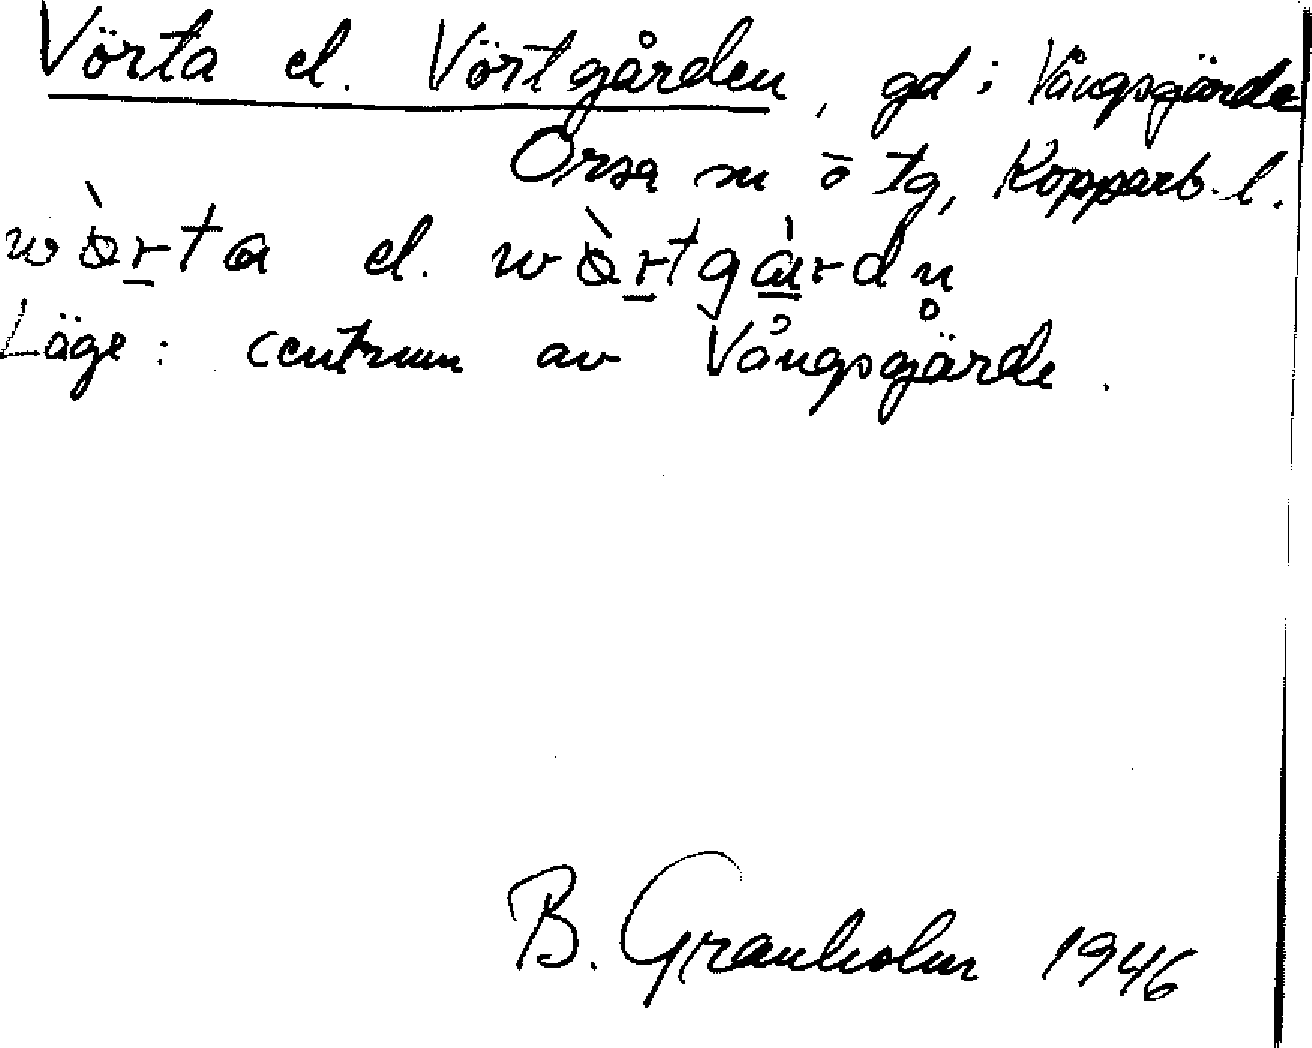 Vörta el. Vörtgården, gd i Vångsgärde
Orsa sn o tg, Kopparb. l.
wòrta el. wòrtgàrdn̥
Läge: centrum av Vångsgärde.
B. Granholm 1946